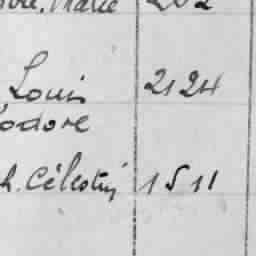 Marie 202
Louis 2124
odore
h. Célestin 1511